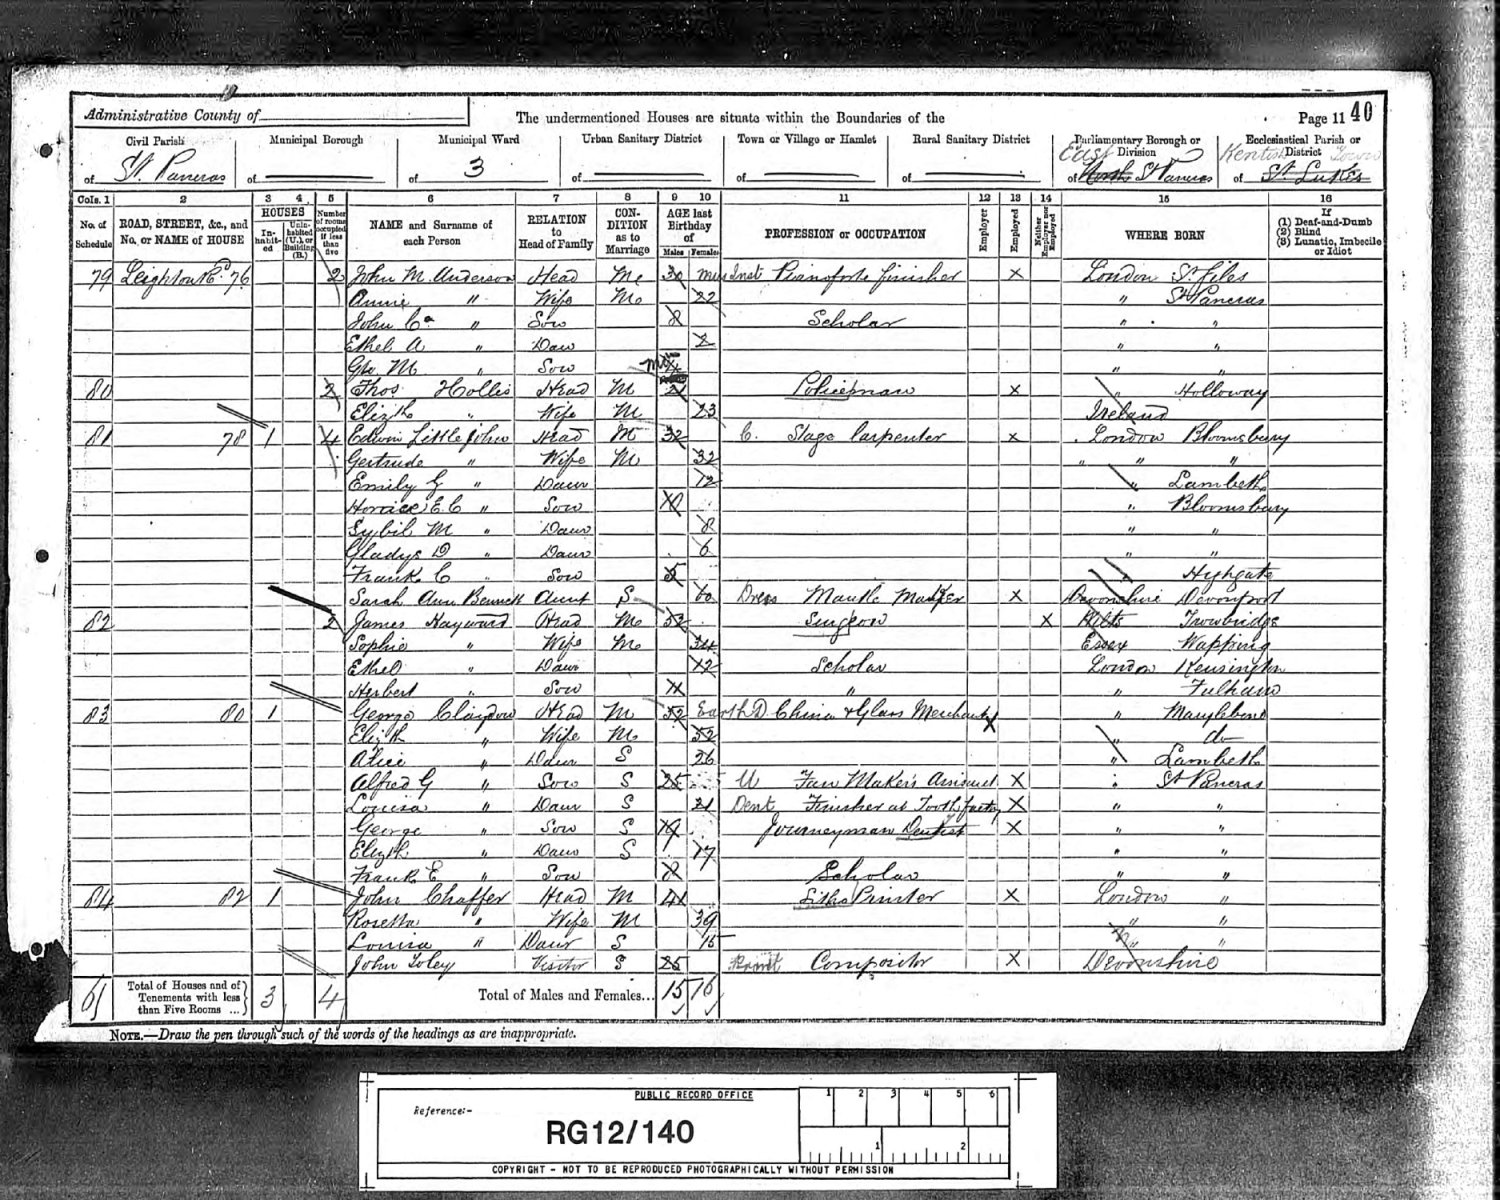 Administrative County of
The undermentioned Houses are situate within the Boundaries of the
Page 11 40
Civil Parish
of St. Pancras
Municipal Borough
of
Municipal Ward
of 3
Urban Sanitary District
of
Town or Village or Hamlet
of
Rural Sanitary District
of
Parliamentary Borough or Division
of East North St Pancras
Ecclesiastical Parish or District
of Kentish Town St Lukes
Cols. 1 2 3 4 5 6 7 8 9 10 11 12 13 14 15 16
No. of Schedule
ROAD, STREET, &c., and No. or NAME of HOUSE
HOUSES
In-habit-ed
Unin-habited (U.), or Building (B.)
Number of rooms occupied if less than five
NAME and Surname of each Person
RELATION to Head of Family
CON-DITION as to Marriage
AGE last Birthday of
Males Females
PROFESSION or OCCUPATION
Employer
Employed
Neither Employer nor Employed
WHERE BORN
If
(1) Deaf-and-Dumb
(2) Blind
(3) Lunatic, Imbecile or Idiot
79 Leighton Rd 76 2 John M. Anderson Head M 30 Mus Inst Pianoforte finisher X London St Giles
Annie " Wife M 22 " St Pancras
John C " Son Scholar " "
Ethel A " Daur 2 " "
Geo M " Son 4 " "
80 2 Thos Hollis Head M 21 Policeman X " Holloway
Elizth " Wife M 23 Ireland
81 78 1 4 Edwin Littlejohn Head M 32 C. Stage Carpenter X London Bloomsbury
Gertrude " Wife M 32 " " "
Emily G " Daur 12 " Lambeth
Horace E. C " Son 10 " Bloomsbury
Sybil M " Daur 8 " "
Gladys D " Daur 6 " "
Frank C " Son " Highgate
Sarah Ann Bennett Aunt S 60 Dress Mantle Maker X Devonshire Devonport
82 2 James Hayward Head M 52 Surgeon X Wilts Trowbridge
Sophia " Wife M 34 Essex Wapping
Ethel " Daur 12 Scholar London Kensington
Herbert " Son " " Fulham
83 80 1 George Claydon Head M 52 Earth D China & Glass Merchant X " Marylebone
Elizth " Wife M 52 " do
Alice " Daur S 26 " Lambeth
Alfred G " Son S 25 U Fan Makers Assistant X " St Pancras
Louisa " Daur S 21 Dent Finisher at Tooth factory X " "
George " Son S 19 Journeyman Dentist X " "
Elizth " Daur S 17 " "
Frank E " Son 8 Scholar " "
84 82 1 John Chaffer Head M 41 Litho Printer X London "
Rosetta " Wife M 39 " "
Louisa " Daur S 15 " "
John Foley Visitor S 25 Print Compositor X Devonshire
61 Total of Houses and of Tenements with less than Five Rooms ... 3 4 Total of Males and Females... 15 16
NOTE.—Draw the pen through such of the words of the headings as are inappropriate.
PUBLIC RECORD OFFICE
Reference:-
RG12/140
1 2 3 4 5 6
1 2
COPYRIGHT - NOT TO BE REPRODUCED PHOTOGRAPHICALLY WITHOUT PERMISSION